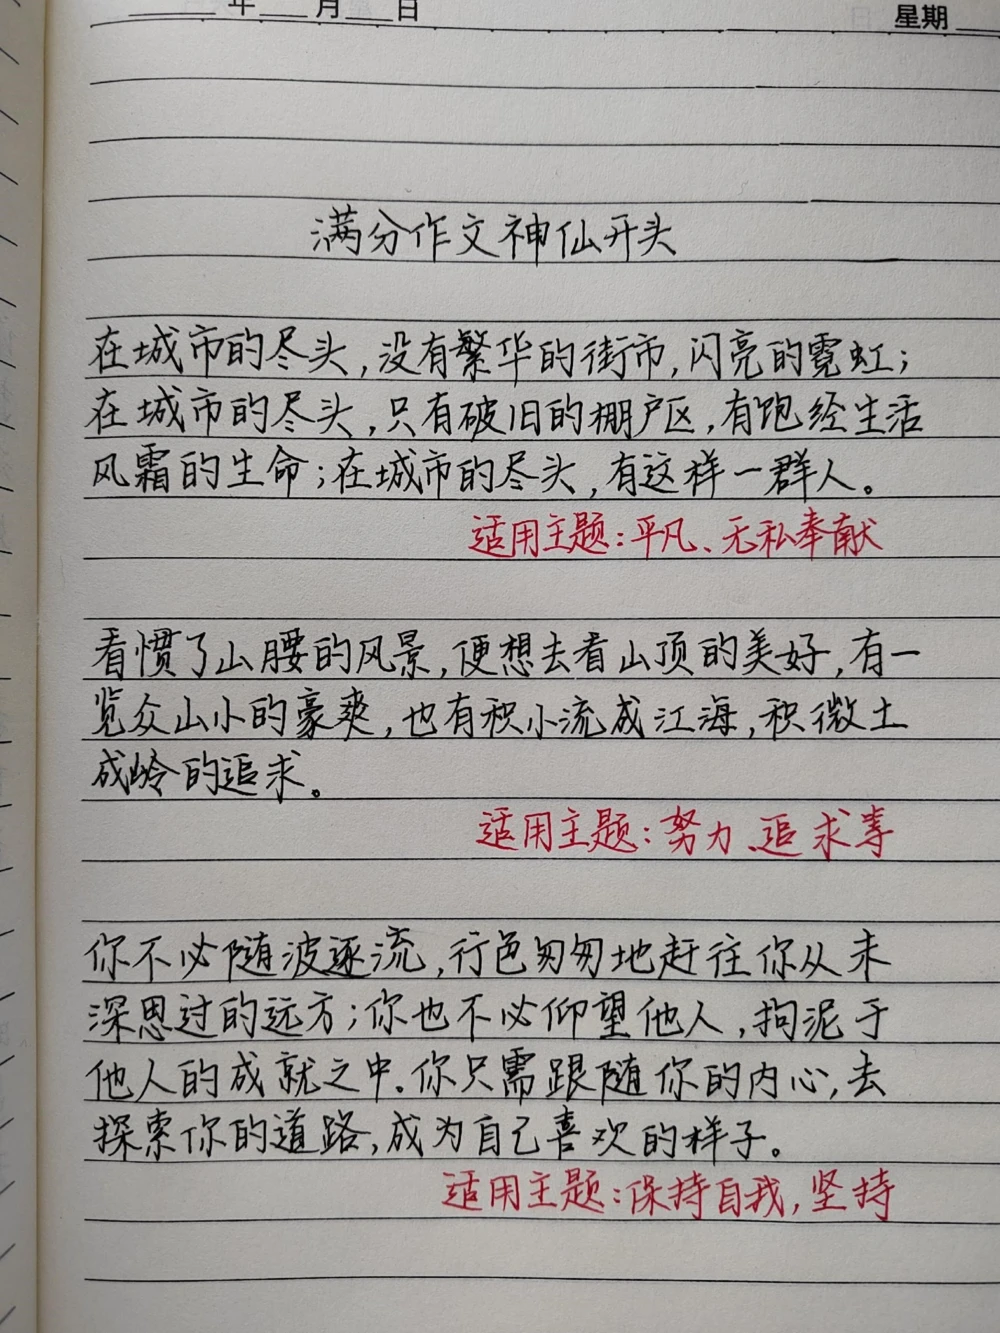 年 月 日 星期
满分作文神仙开头
在城市的尽头,没有繁华的街市,闪亮的霓虹;
在城市的尽头,只有破旧的棚户区,有饱经生活
风霜的生命;在城市的尽头,有这样一群人。
适用主题:平凡、无私奉献
看惯了山腰的风景,便想去看山顶的美好,有一
览众山小的豪爽,也有积小流成江海,积微土
成岭的追求。
适用主题:努力、追求等
你不必随波逐流,行色匆匆地赶往你从未
深思过的远方;你也不必仰望他人,拘泥于
他人的成就之中.你只需跟随你的内心,去
探索你的道路,成为自己喜欢的样子。
适用主题:保持自我,坚持